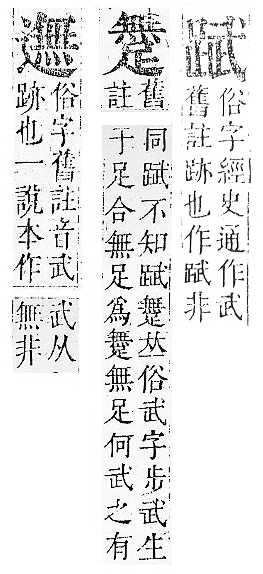 䟼
俗字經史通作武
舊註跡也作䟼非
⿱無足
舊
註
同䟼不知䟼⿱無足丛俗武字步武生
于足合無足爲⿱無足無足何武之有
⿺辶無
俗字舊註音武
跡也一說本作
武从
無非